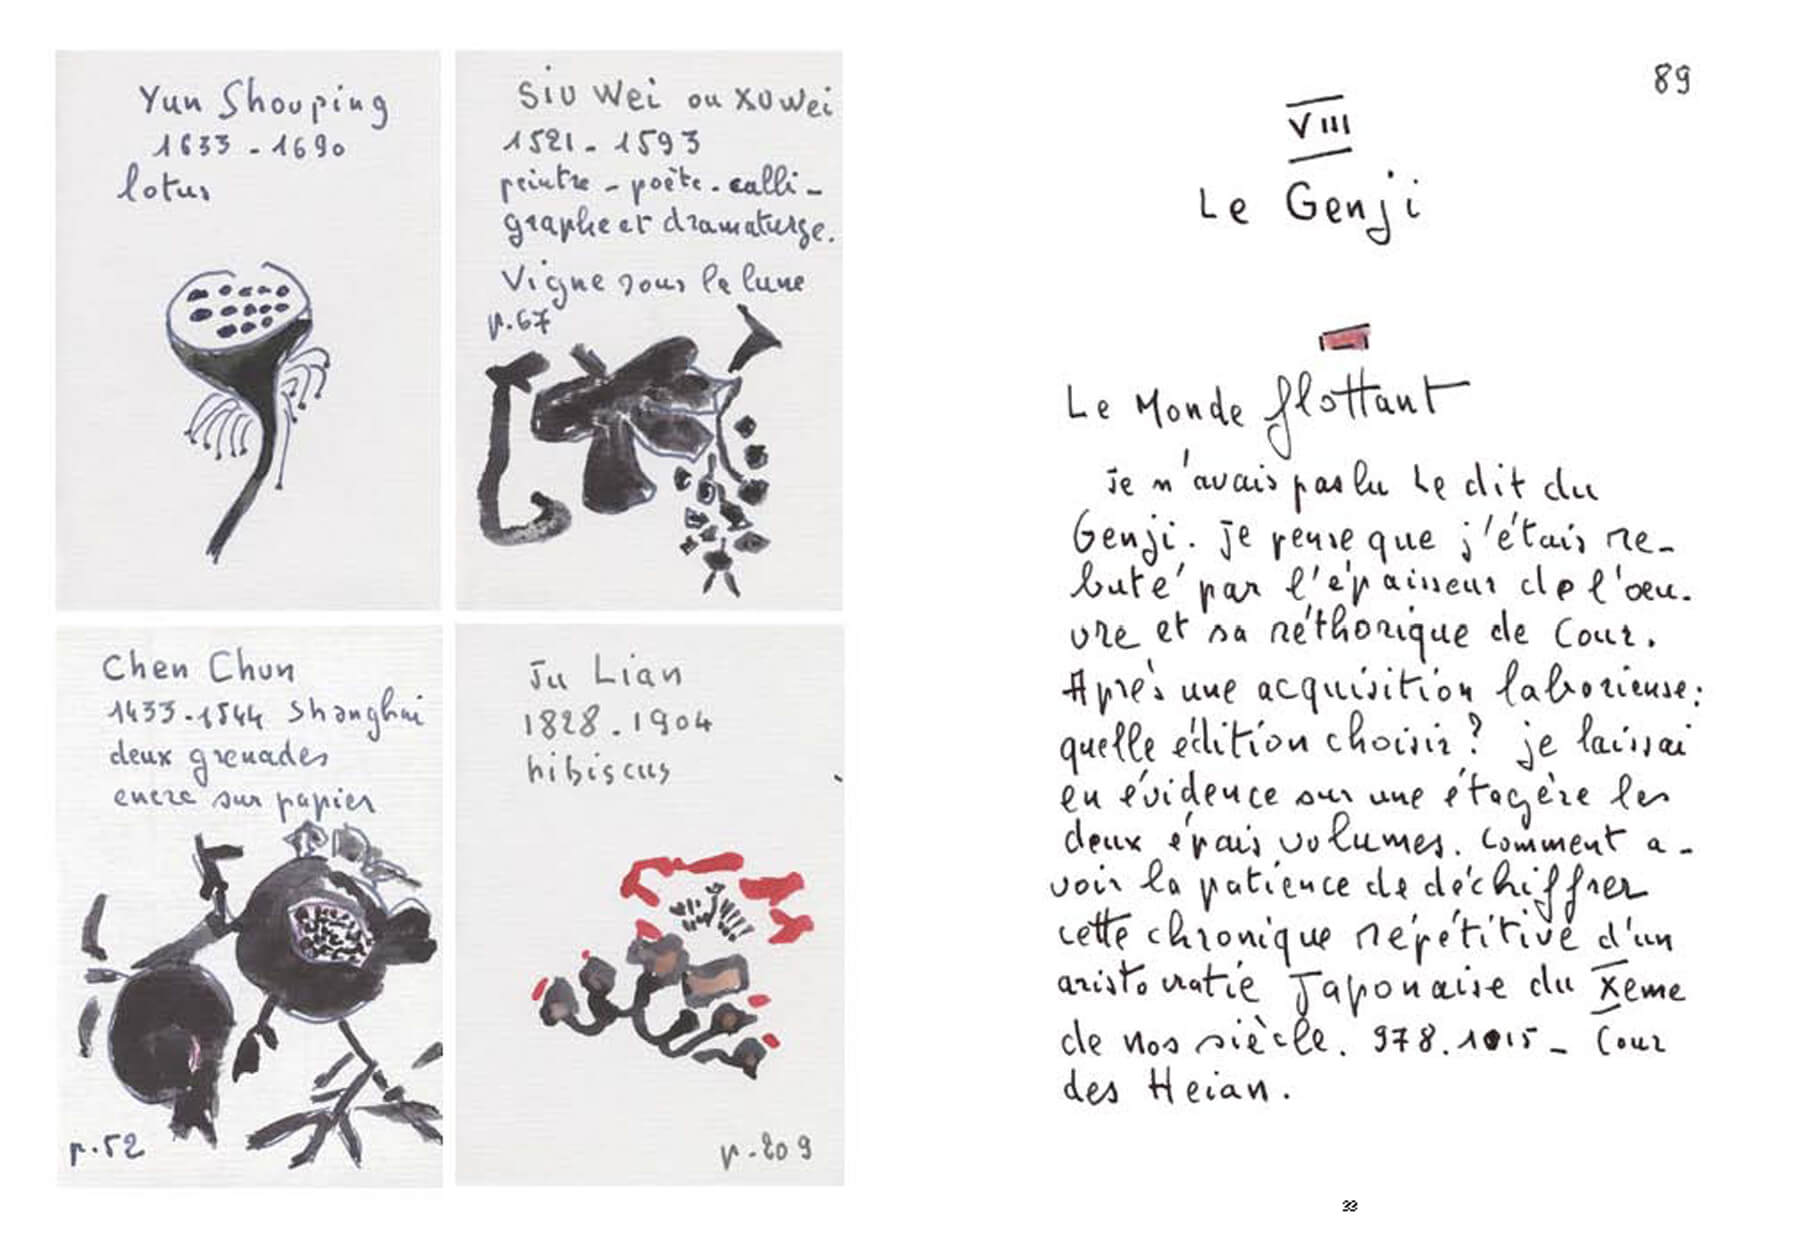 Yun Shouping
1633 - 1690
lotus
Siu Wei ou Xu Wei
1521 - 1593
peintre - poète - calli-
graphe et dramaturge.
Vigne sous la lune
p. 67
Chen Chun
1433 - 1544 Shanghai
deux grenades
encre sur papier
p. 52
Ju Lian
1828 - 1904
hibiscus
p. 209
89
VIII
Le Genji
Le Monde flottant
Je n'avais pas lu Le dit du
Genji. Je pense que j'étais re-
buté par l'épaisseur de l'oeu-
vre et sa réthorique de Cour.
Après une acquisition laborieuse:
quelle édition choisir? je laissai
en évidence sur une étagère les
deux épais volumes. Comment a-
voir la patience de déchiffrer
cette chronique répétitive d'un
aristocratie Japonaise du Xeme
de nos siècle. 978.1015 - Cour
des Heian.
33